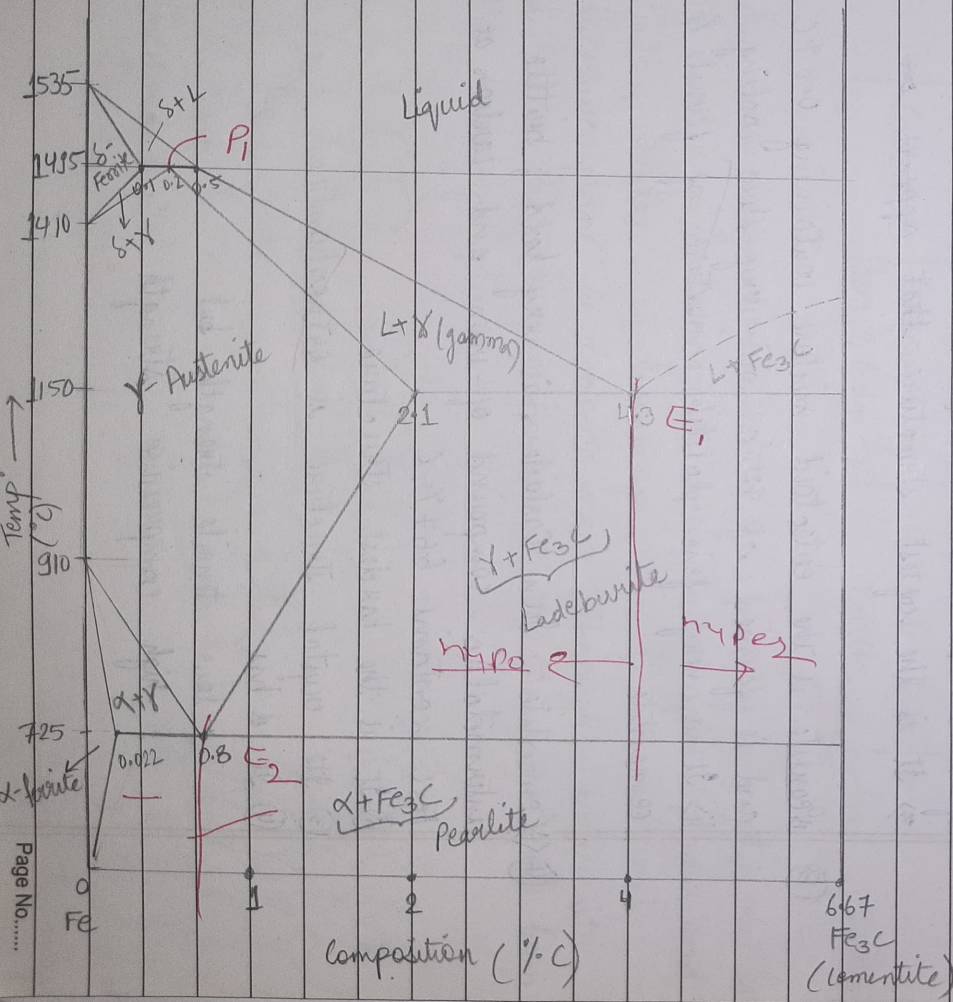 1535
δ+L
Liquid
P1
1495
δ-
Ferrite
0.1
0.2
0.5
1410
δ+γ
L+γ (gamma)
γ-Austenite
L+Fe3C
1150
2.1
4.3
E1
Temp
(°C)
910
γ+Fe3C
Ladeburite
hypo
hyper
α+γ
725
0.022
0.8
E2
α-ferrite
α+Fe3C
Pearlite
Page No......
0
1
2
4
6.67
Fe
Fe3C
(cementite)
Composition (%C)